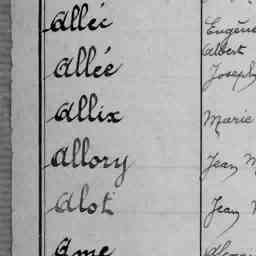 Alléi Eugène
Albert
Allée Joseph
Allix Marie
Allory Jean M
Alot Jean
Ame